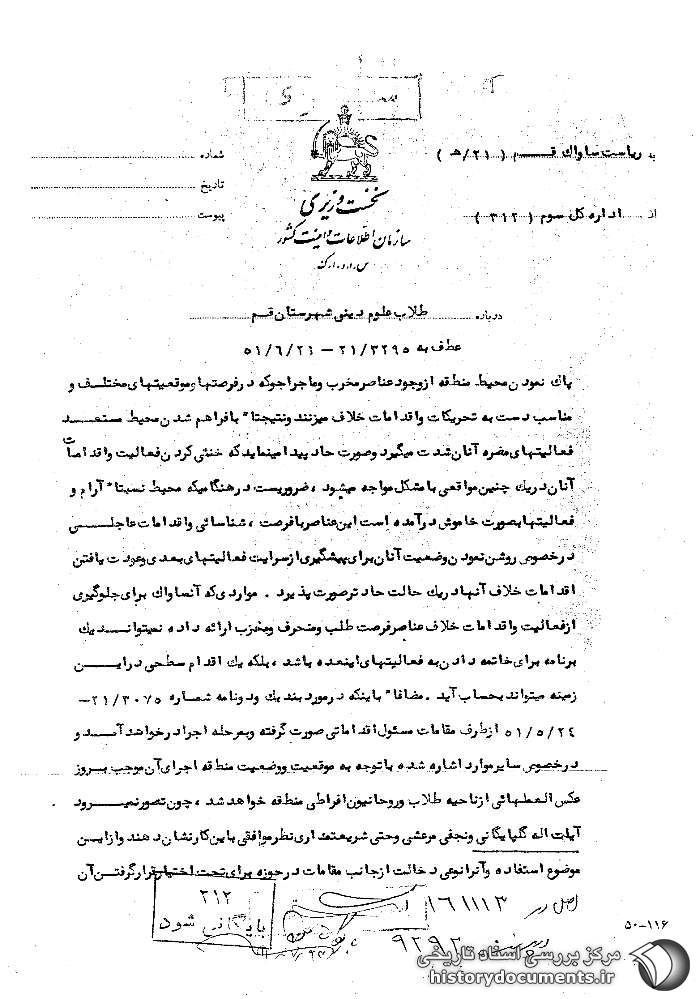 سری
به ریاست ساواک قم ( ۲۱/ه )
شماره
نخست وزیری
تاریخ
از اداره کل سوم ( ۳۱۲ )
پیوست
سازمان اطلاعات و امنیت کشور
س.ا.و.ا.ک
درباره طلاب علوم دینی شهرستان قم
عطف به ۲۱/۳۲۹۵ – ۵۱/۶/۲۱
پاک نمودن محیط منطقه از وجود عناصر مخرب و ماجراجو که در فرصتها و موقعیتهای مختلف و
مناسب دست به تحریکات و اقدامات خلاف میزنند و نتیجتا" با فراهم شدن محیط مستعد
فعالیتهای مضره آنان شدت میگیرد و صورت حاد پیدا مینماید که خنثی کردن فعالیت و اقدامات
آنان در یک چنین مواقعی با مشکل مواجه میشود ، ضروریست در هنگامیکه محیط نسبتا" آرام و
فعالیتها بصورت خاموش درآمده است این عناصر با فرصت ، شناسائی و اقدامات عاجلی
در خصوص روشن نمودن وضعیت آنان برای پیشگیری از سرایت فعالیتهای بعدی و عودت یافتن
اقدامات خلاف آنها در یک حالت حادتر صورت پذیرد . مواردی که آنساواک برای جلوگیری
از فعالیت و اقدامات خلاف عناصر فرصت طلب و منحرف و مخرب ارائه داده نمیتواند یک
برنامه برای خاتمه دادن به فعالیتهای اینعده باشد ، بلکه یک اقدام سطحی در این
زمینه میتواند بحساب آید . مضافا" باینکه در مورد بند یک و دو نامه شماره ۲۱/۳۰۷۵ –
۵۱/۵/۲۴ از طرف مقامات مسئول اقداماتی صورت گرفته و بمرحله اجرا درخواهد آمد و
در خصوص سایر موارد اشاره شده با توجه به موقعیت و وضعیت منطقه اجرای آن موجب بروز
عکس العملهائی از ناحیه طلاب و روحانیون افراطی منطقه خواهد شد ، چون تصور نمیرود
آیات اله گلپایگانی و نجفی مرعشی و حتی شریعتمداری نظر موافقی باین کار نشان دهند و از این
موضوع استفاده و آنرا نوعی دخالت از جانب مقامات در حوزه برای تحت اختیار قرار گرفتن آن
اصل در ۱۶۱۱۱۳
۳۱۲
بایگانی شود
۵۰-۱۱۶
۹۲۹۲
مرکز بررسی اسناد تاریخی
historydocuments.ir